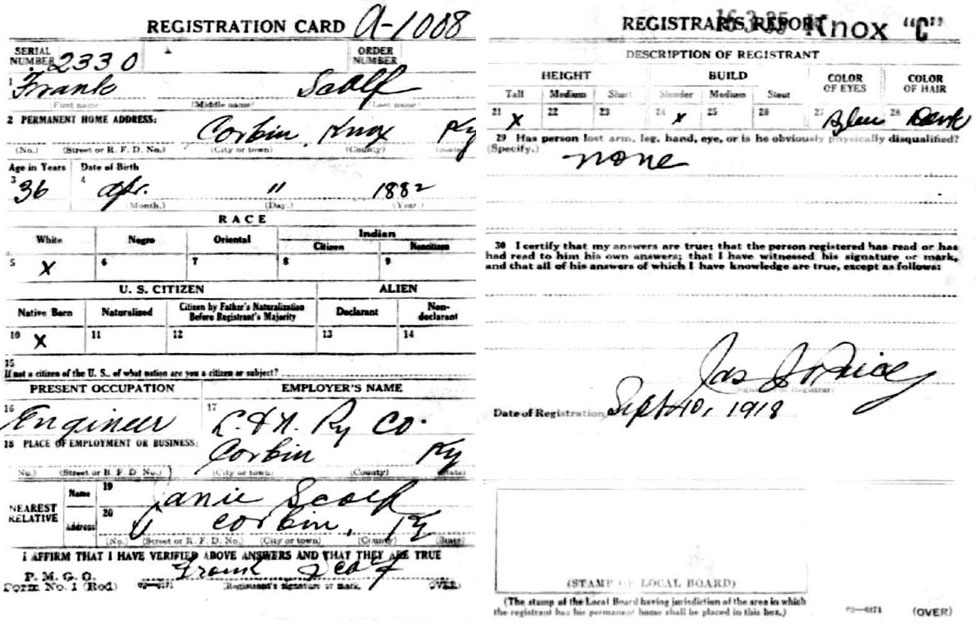 REGISTRATION CARD A-1008
SERIAL NUMBER 2330 ORDER NUMBER
1 Frank Scalf
(First name) (Middle name) (Last name)
2 PERMANENT HOME ADDRESS:
Corbin Knox Ky
(No.) (Street or R. F. D. No.) (City or town) (County) (State)
Age in Years Date of Birth
3 36 4 Apr. 11 1882
(Month.) (Day.) (Year.)
RACE
White Negro Oriental Indian
Citizen Noncitizen
5 X 6 7 8 9
U. S. CITIZEN ALIEN
Native Born Naturalized Citizen by Father's Naturalization Before Registrant's Majority Declarant Non-declarant
10 X 11 12 13 14
15
If not a citizen of the U. S., of what nation are you a citizen or subject?
PRESENT OCCUPATION EMPLOYER'S NAME
16 Engineer 17 L. & N. Ry Co.
18 PLACE OF EMPLOYMENT OR BUSINESS:
Corbin Ky
(No.) (Street or R. F. D. No.) (City or town) (County) (State)
NEAREST RELATIVE Name 19 Janie Scalf
Address 20 Corbin, Ky
(No.) (Street or R. F. D. No.) (City or town) (County) (State)
I AFFIRM THAT I HAVE VERIFIED ABOVE ANSWERS AND THAT THEY ARE TRUE
P. M. G. O.
Form No. 1 (Red) Frank Scalf
(Registrant's signature or mark.) (OVER)
REGISTRAR'S REPORT
16-3-25 Knox "C"
DESCRIPTION OF REGISTRANT
HEIGHT BUILD COLOR OF EYES COLOR OF HAIR
Tall Medium Short Slender Medium Stout
21 X 22 23 24 X 25 26 27 Blue 28 Dark
29 Has person lost arm, leg, hand, eye, or is he obviously physically disqualified?
(Specify.) none
30 I certify that my answers are true; that the person registered has read or has
had read to him his own answers; that I have witnessed his signature or mark,
and that all of his answers of which I have knowledge are true, except as follows:
Jas Price
(Signature of Registrar)
Date of Registration Sept 10, 1918
(STAMP OF LOCAL BOARD)
(The stamp of the Local Board having jurisdiction of the area in which
the registrant has his permanent home shall be placed in this box.)
(OVER)